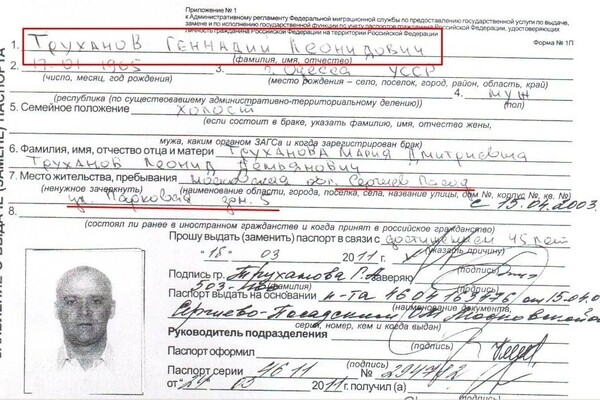 Приложение № 1
к Административному регламенту Федеральной миграционной службы по предоставлению государственной услуги по выдаче,
замене и по исполнению государственной функции по учету паспортов гражданина Российской Федерации, удостоверяющих
личность гражданина Российской Федерации на территории Российской Федерации
Форма № 1П
1. Труханов Геннадий Леонидович
(фамилия, имя, отчество)
2. 17.01.1965 3. г. Одесса УССР
(число, месяц, год рождения) (место рождения – село, поселок, город, район, область, край)
4. муж
(республика (по существовавшему административно-территориальному делению)) (пол)
5. Семейное положение Холост
(если состоит в браке, указать фамилию, имя, отчество жены,
мужа, каким органом ЗАГСа и когда зарегистрирован брак)
6. Фамилия, имя, отчество отца и матери Труханова Мария Дмитриевна
Труханов Леонид Демьянович
7. Место жительства, пребывания Московская обл. Сергиев Посад
(ненужное зачеркнуть) (наименование области, города, поселка, села, название улицы, дом №, корпус №, кв. №)
ул. Парковая дом. 5 с 15.04.2003
8.
(состоял ли ранее в иностранном гражданстве и когда принят в российское гражданство)
Прошу выдать (заменить) паспорт в связи с достижением 45 лет
(указать причину)
"18" 03 2011 г.
(подпись)
Подпись гр. Труханова Г.Л. заверяю
503-
(подпись)
Паспорт выдать на основании п-та 4604163476 от 15.04.0
Сергиево-Посадским Московской
серия, номер, кем и когда выдан)
Руководитель подразделения
(подпись)
Паспорт оформил
(подпись)
Паспорт серии 4611 №
от "24" 03 2011 г. получил (а)
(подпись)